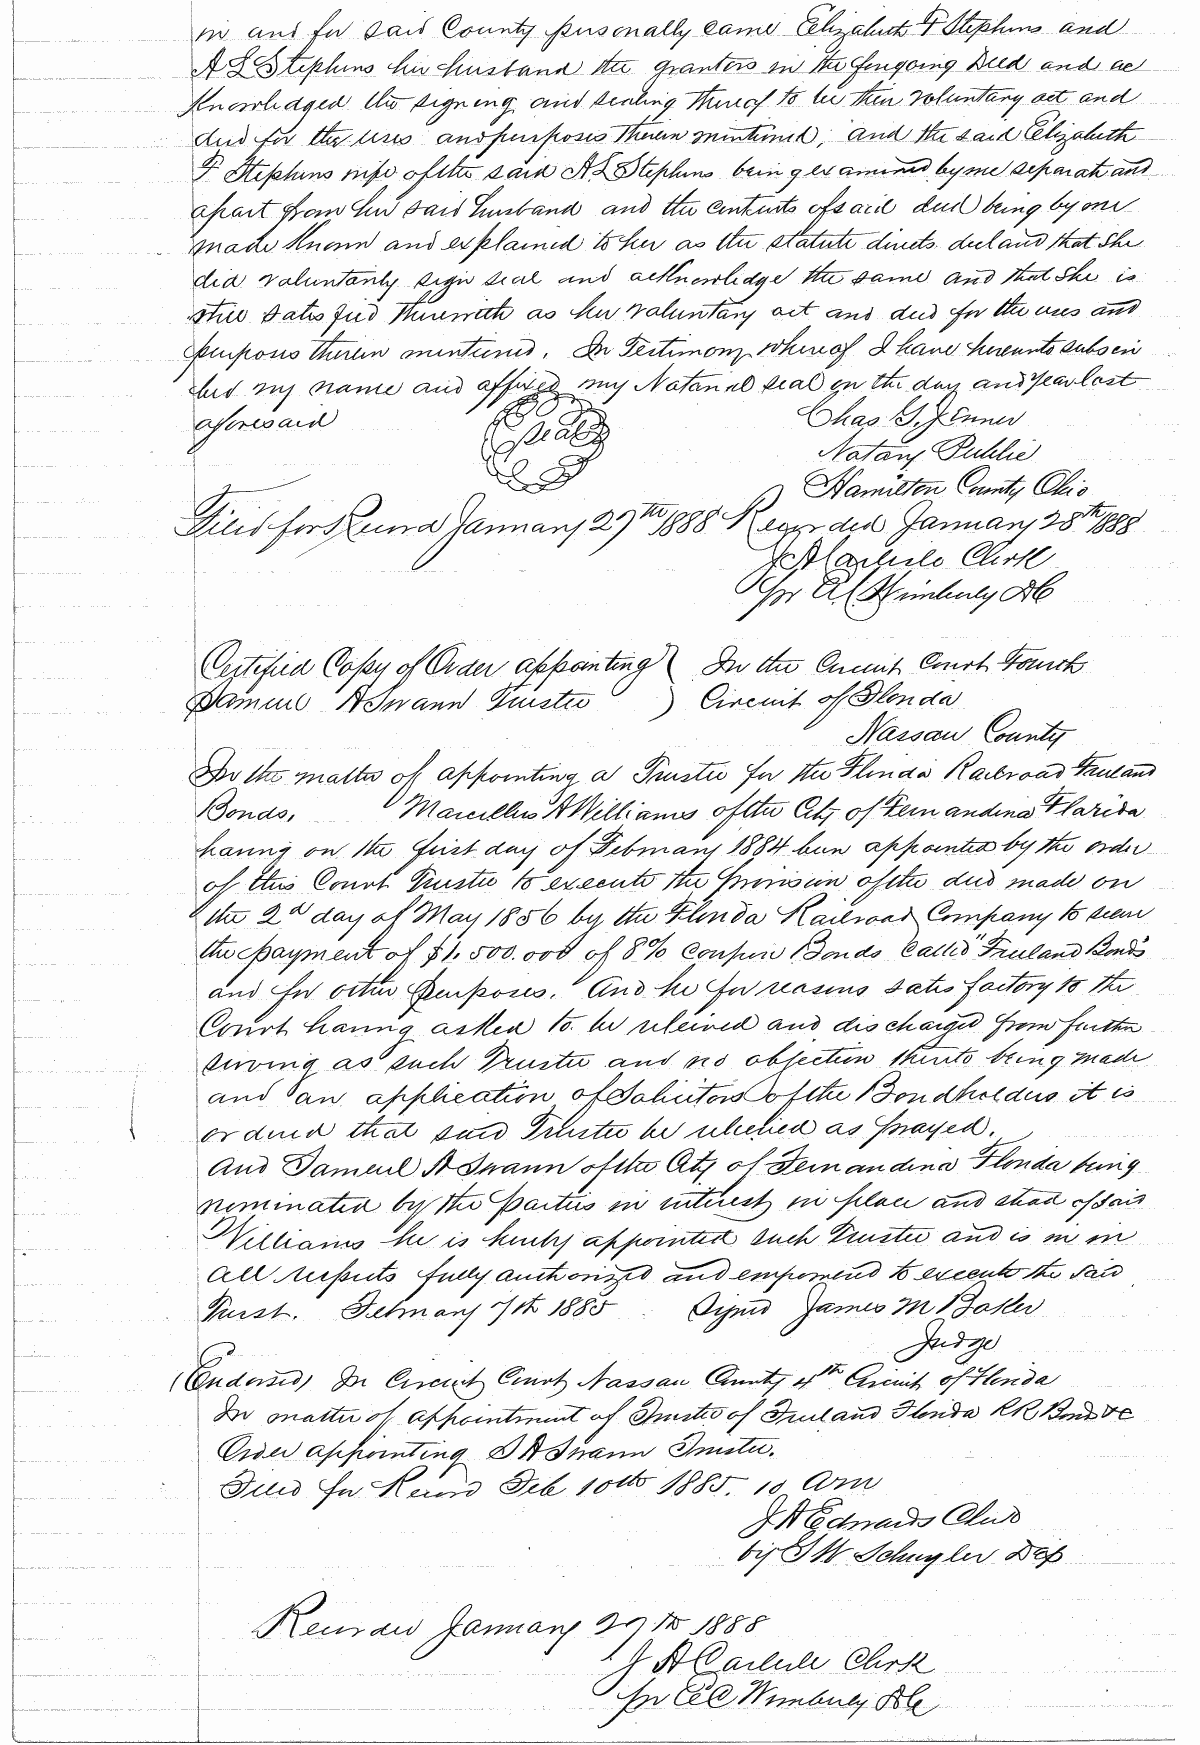 in and for said County personally came Elizabeth F Stephens and
A L Stephens her husband the grantors in the foregoing Deed and ac
knowledged the signing and sealing thereof to be their voluntary act and
deed for the uses and purposes therein mentioned, and the said Elizabeth
F Stephens wife of the said A L Stephens being examined by me separate and
apart from her said husband and the contents of said deed being by me
made known and explained to her as the statute directs declared that she
did voluntarily sign seal and acknowledge the same and that she is
still satisfied therewith as her voluntary act and deed for the uses and
purposes therein mentioned. In Testimony whereof I have hereunto subscri
bed my name and affixed my Notarial seal on the day and year last
aforesaid
Seal
Chas S. Jenner
Notary Public
Hamilton County Ohio
Filed for Record January 27th 1888 Recorded January 28th 1888
J A Carlisle Clerk
Per Wimberly DC
Certified Copy of Order appointing ) In the Circuit Court Fourth
Samuel A Swann Trustee ) Circuit of Florida
Nassau County
In the matter of appointing a Trustee for the Florida Railroad Freeland
Bonds. Marcellus A Williams of the City of Fernandina Florida
having on the first day of February 1884 been appointed by the order
of this Court Trustee to execute the provision of the deed made on
the 2d day of May 1856 by the Florida Railroad Company to secure
the payment of $1,500.000 of 8% Coupon Bonds Called "Freeland Bonds"
and for other Purposes. And he for reasons satisfactory to the
Court having asked to be relieved and discharged from further
serving as such Trustee and no objection thereto being made
and on application of Solicitors of the Bondholders it is
ordered that said Trustee be relieved as prayed.
And Samuel A Swann of the City of Fernandina Florida being
nominated by the Parties in interest in place and stead of said
Williams he is hereby appointed such Trustee and is in in
all respects fully authorized and empowered to execute the said
Trust. February 7th 1885 Signed James M Baker
Judge
(Endorsed) In Circuit Court Nassau County 4th Circuit of Florida
In matter of appointment of Trustee of Freeland Florida RR Bonds &c
Order appointing S A Swann Trustee.
Filed for Record Feb 10th 1885. 10 Am
J A Edwards Clerk
by T W Schuyler Dep
Recorded January 27th 1888
J A Carlisle Clerk
Per Wimberly DC